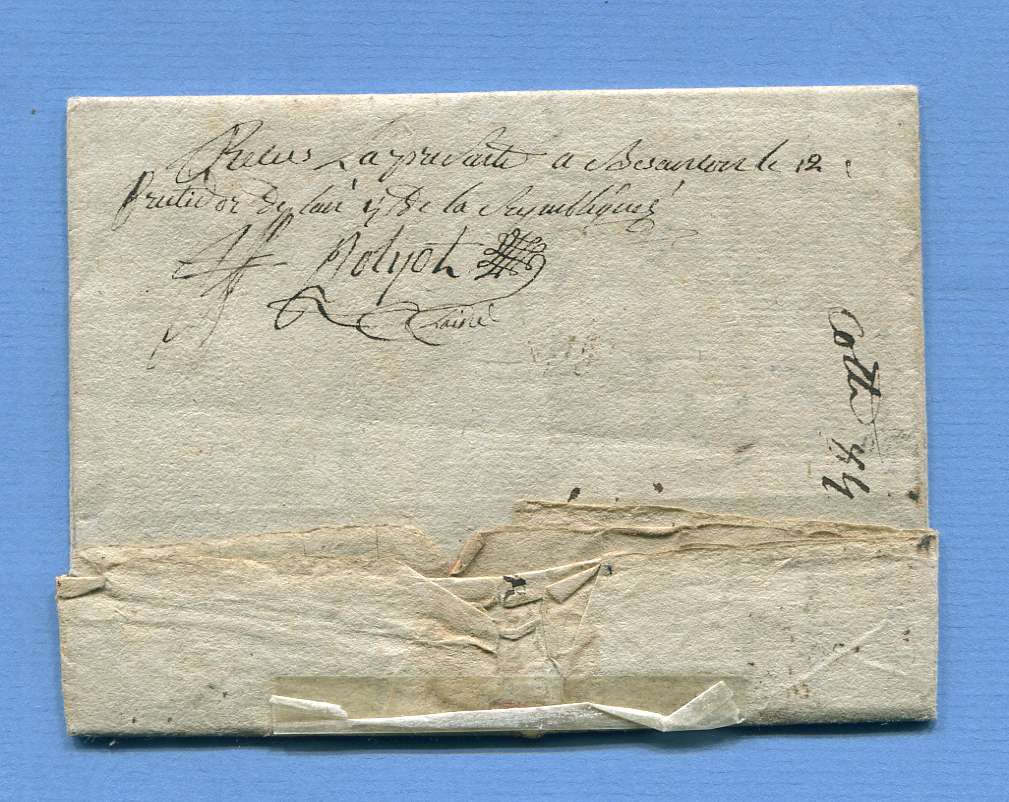 Recus La presente a Besancon le 12
frutidor de lan 7 De la Republique
Polyot
Lainé
Cotte 44